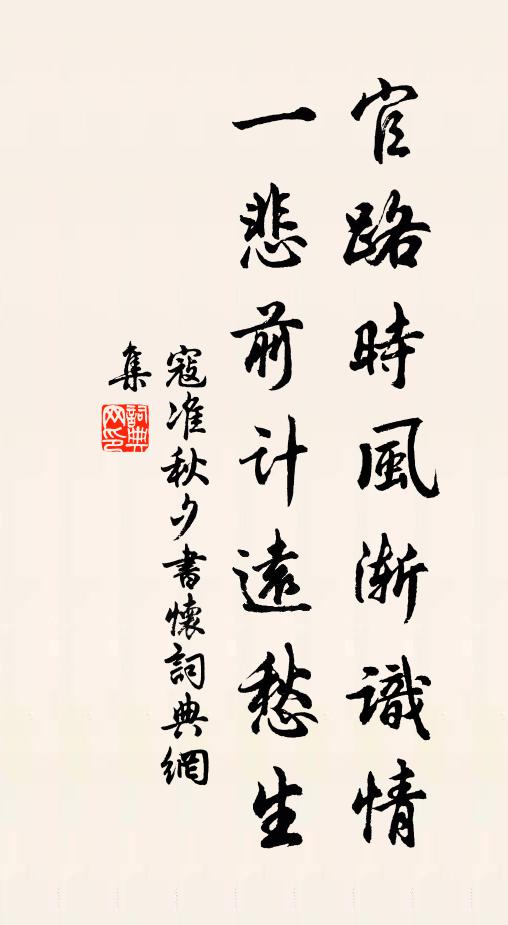 官路時風漸識情
一悲前計遠愁生
寇准秋夕書懷詞典網
集
詞典
网印